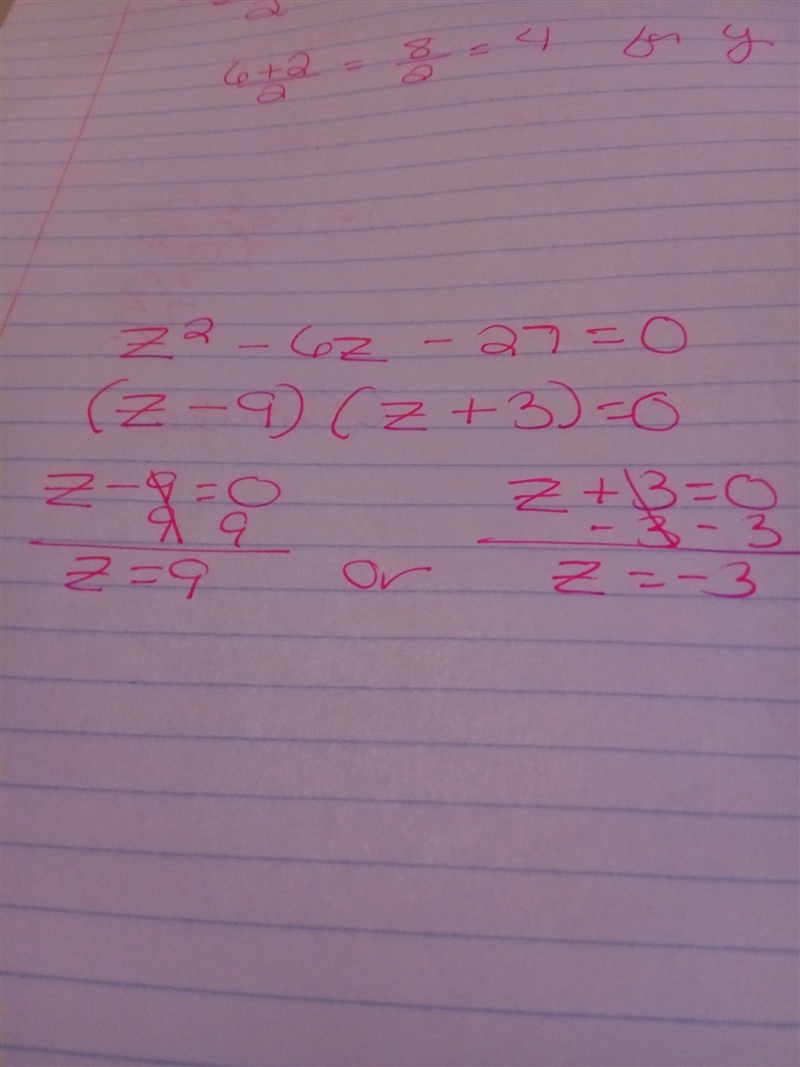 2
6+2/2 = 8/2 = 4 for y
z² - 6z - 27 = 0
(z - 9) (z + 3) = 0
z - 9 = 0 z + 3 = 0
9 9 - 3 - 3
z = 9 or z = -3